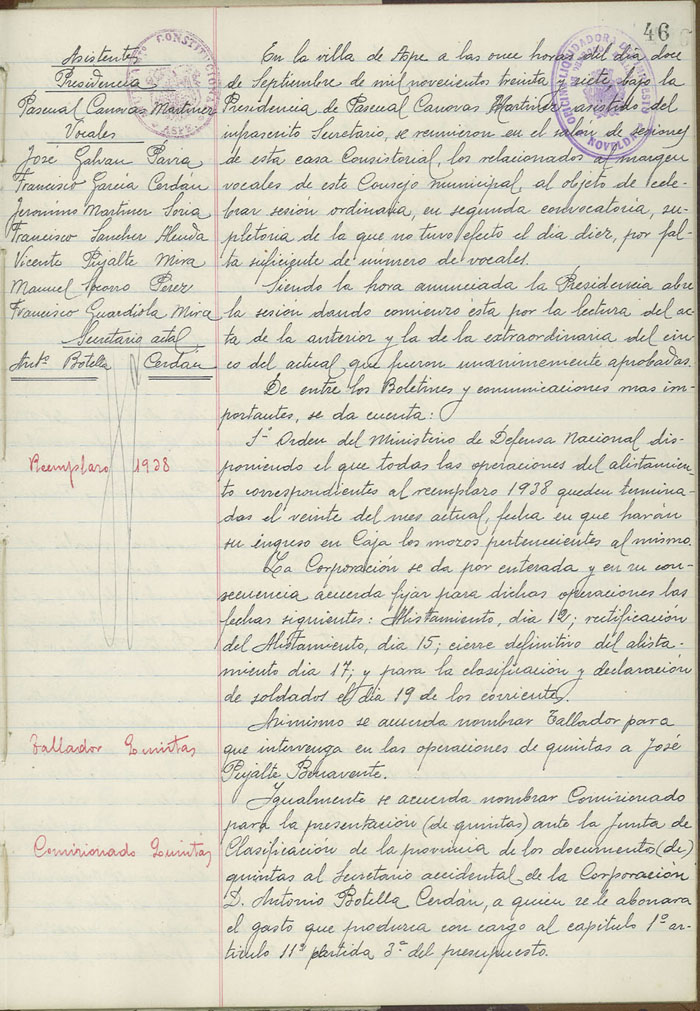 46
Asistente
Presidencia
Pascual Canovas Martinez
Vocales
José Galvan Parra
Francisco García Cerdán
Jeronimo Martinez Soria
Francisco Sanchez Alenda
Vicente Pujalte Mira
Manuel Cocono Perez
Francisco Guardiola Mira
Secretario actal,
Antº Botella Cerdán
En la villa de Aspe a las once horas del día doce
de Septiembre de mil novecientos treinta y siete, bajo la
Presidencia de Pascual Canovas Martinez, asistido del
infrascrito Secretario, se reunieron en el salón de sesiones
de esta casa Consistorial, los relacionados al margen
vocales de este Consejo municipal, al objeto de cele-
brar sesión ordinaria, en segunda convocatoria, su-
pletoria de la que no tuvo efecto el día diez, por fal-
ta suficiente de número de vocales.
Siendo la hora anunciada la Presidencia abre
la sesión dando comienzo ésta por la lectura del ac-
ta de la anterior y la de la extraordinaria del cin-
co del actual que fueron unanimemente aprobadas.
De entre los Boletines y comunicaciones mas im-
portantes, se da cuenta:
Reemplazo 1938
1º Orden del Ministerio de Defensa Nacional dis-
poniendo el que todas las operaciones del alistamien-
to correspondientes al reemplazo 1938 queden termina-
das el veinte del mes actual, fecha en que harán
su ingreso en Caja los mozos pertenecientes al mismo.
La Corporación se da por enterada y en su con-
secuencia acuerda fijar para dichas operaciones las
fechas siguientes: Alistamiento, dia 12; rectificación
del Alistamiento, dia 15; cierre definitivo del alista-
miento dia 17; y para la clasificación y declaración
de soldados el dia 19 de los corrientes.
Tallador Quintas
Asimismo se acuerda nombrar Tallador para
que intervenga en las operaciones de quintas a José
Pujalte Benavente.
Comisionado Quintas
Igualmente se acuerda nombrar Comisionado
para la presentación (de quintas) ante la Junta de
Clasificación de la provincia de los documentos (de)
quintas al Secretario accidental de la Corporación
D. Antonio Botella Cerdán, a quien se le abonara
el gasto que produzca con cargo al capitulo 1º ar-
ticulo 11º partida 3ª del presupuesto.